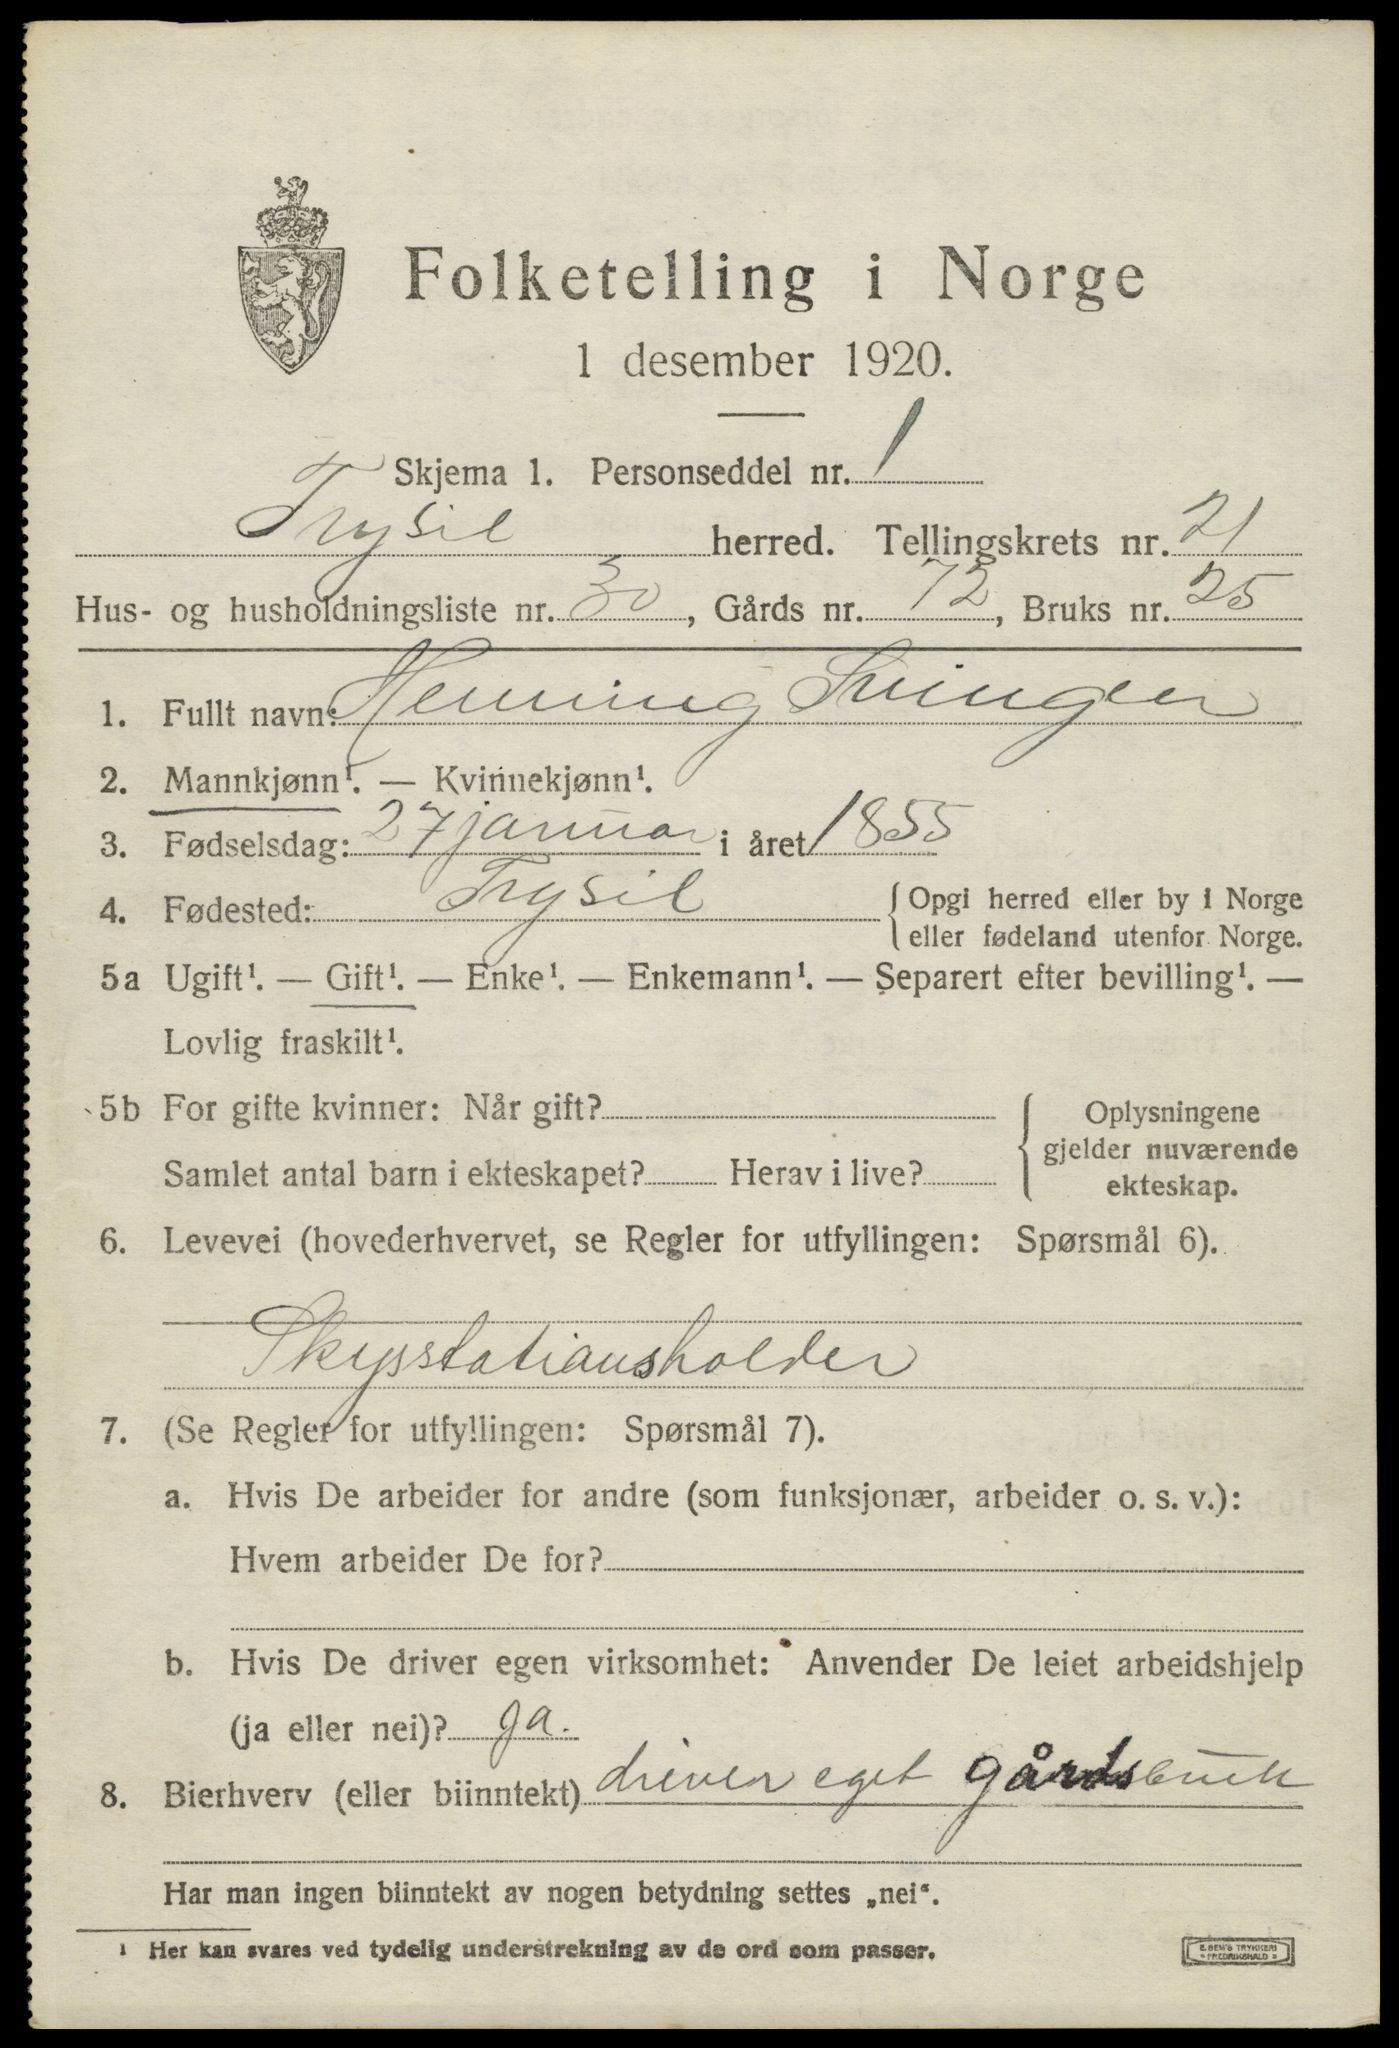 Folketelling i Norge
1 desember 1920.
Skjema 1. Personseddel nr. 1
Trysil herred. Tellingskrets nr. 21
Hus- og husholdningsliste nr. 30, Gårds nr. 72, Bruks nr. 25
1. Fullt navn: Henning Svingen
2. Mannkjønn¹. — Kvinnekjønn¹.
3. Fødselsdag: 27 januar i året 1855
4. Fødested: Trysil {Opgi herred eller by i Norge
eller fødeland utenfor Norge.
5a Ugift¹. — Gift¹. — Enke¹. — Enkemann¹. — Separert efter bevilling¹. —
Lovlig fraskilt¹.
5b For gifte kvinner: Når gift?
Samlet antal barn i ekteskapet? Herav i live?
{Oplysningene
gjelder nuværende
ekteskap.
6. Levevei (hovederhvervet, se Regler for utfyllingen: Spørsmål 6).
Skysstationsholder
7. (Se Regler for utfyllingen: Spørsmål 7).
a. Hvis De arbeider for andre (som funksjonær, arbeider o. s. v.):
Hvem arbeider De for?
b. Hvis De driver egen virksomhet: Anvender De leiet arbeidshjelp
(ja eller nei)? ja.
8. Bierhverv (eller biinntekt) driver eget gårdsbruk
Har man ingen biinntekt av nogen betydning settes „nei“.
¹ Her kan svares ved tydelig understrekning av de ord som passer.
E. SEM'S TRYKKERI
FREDRIKSHALD